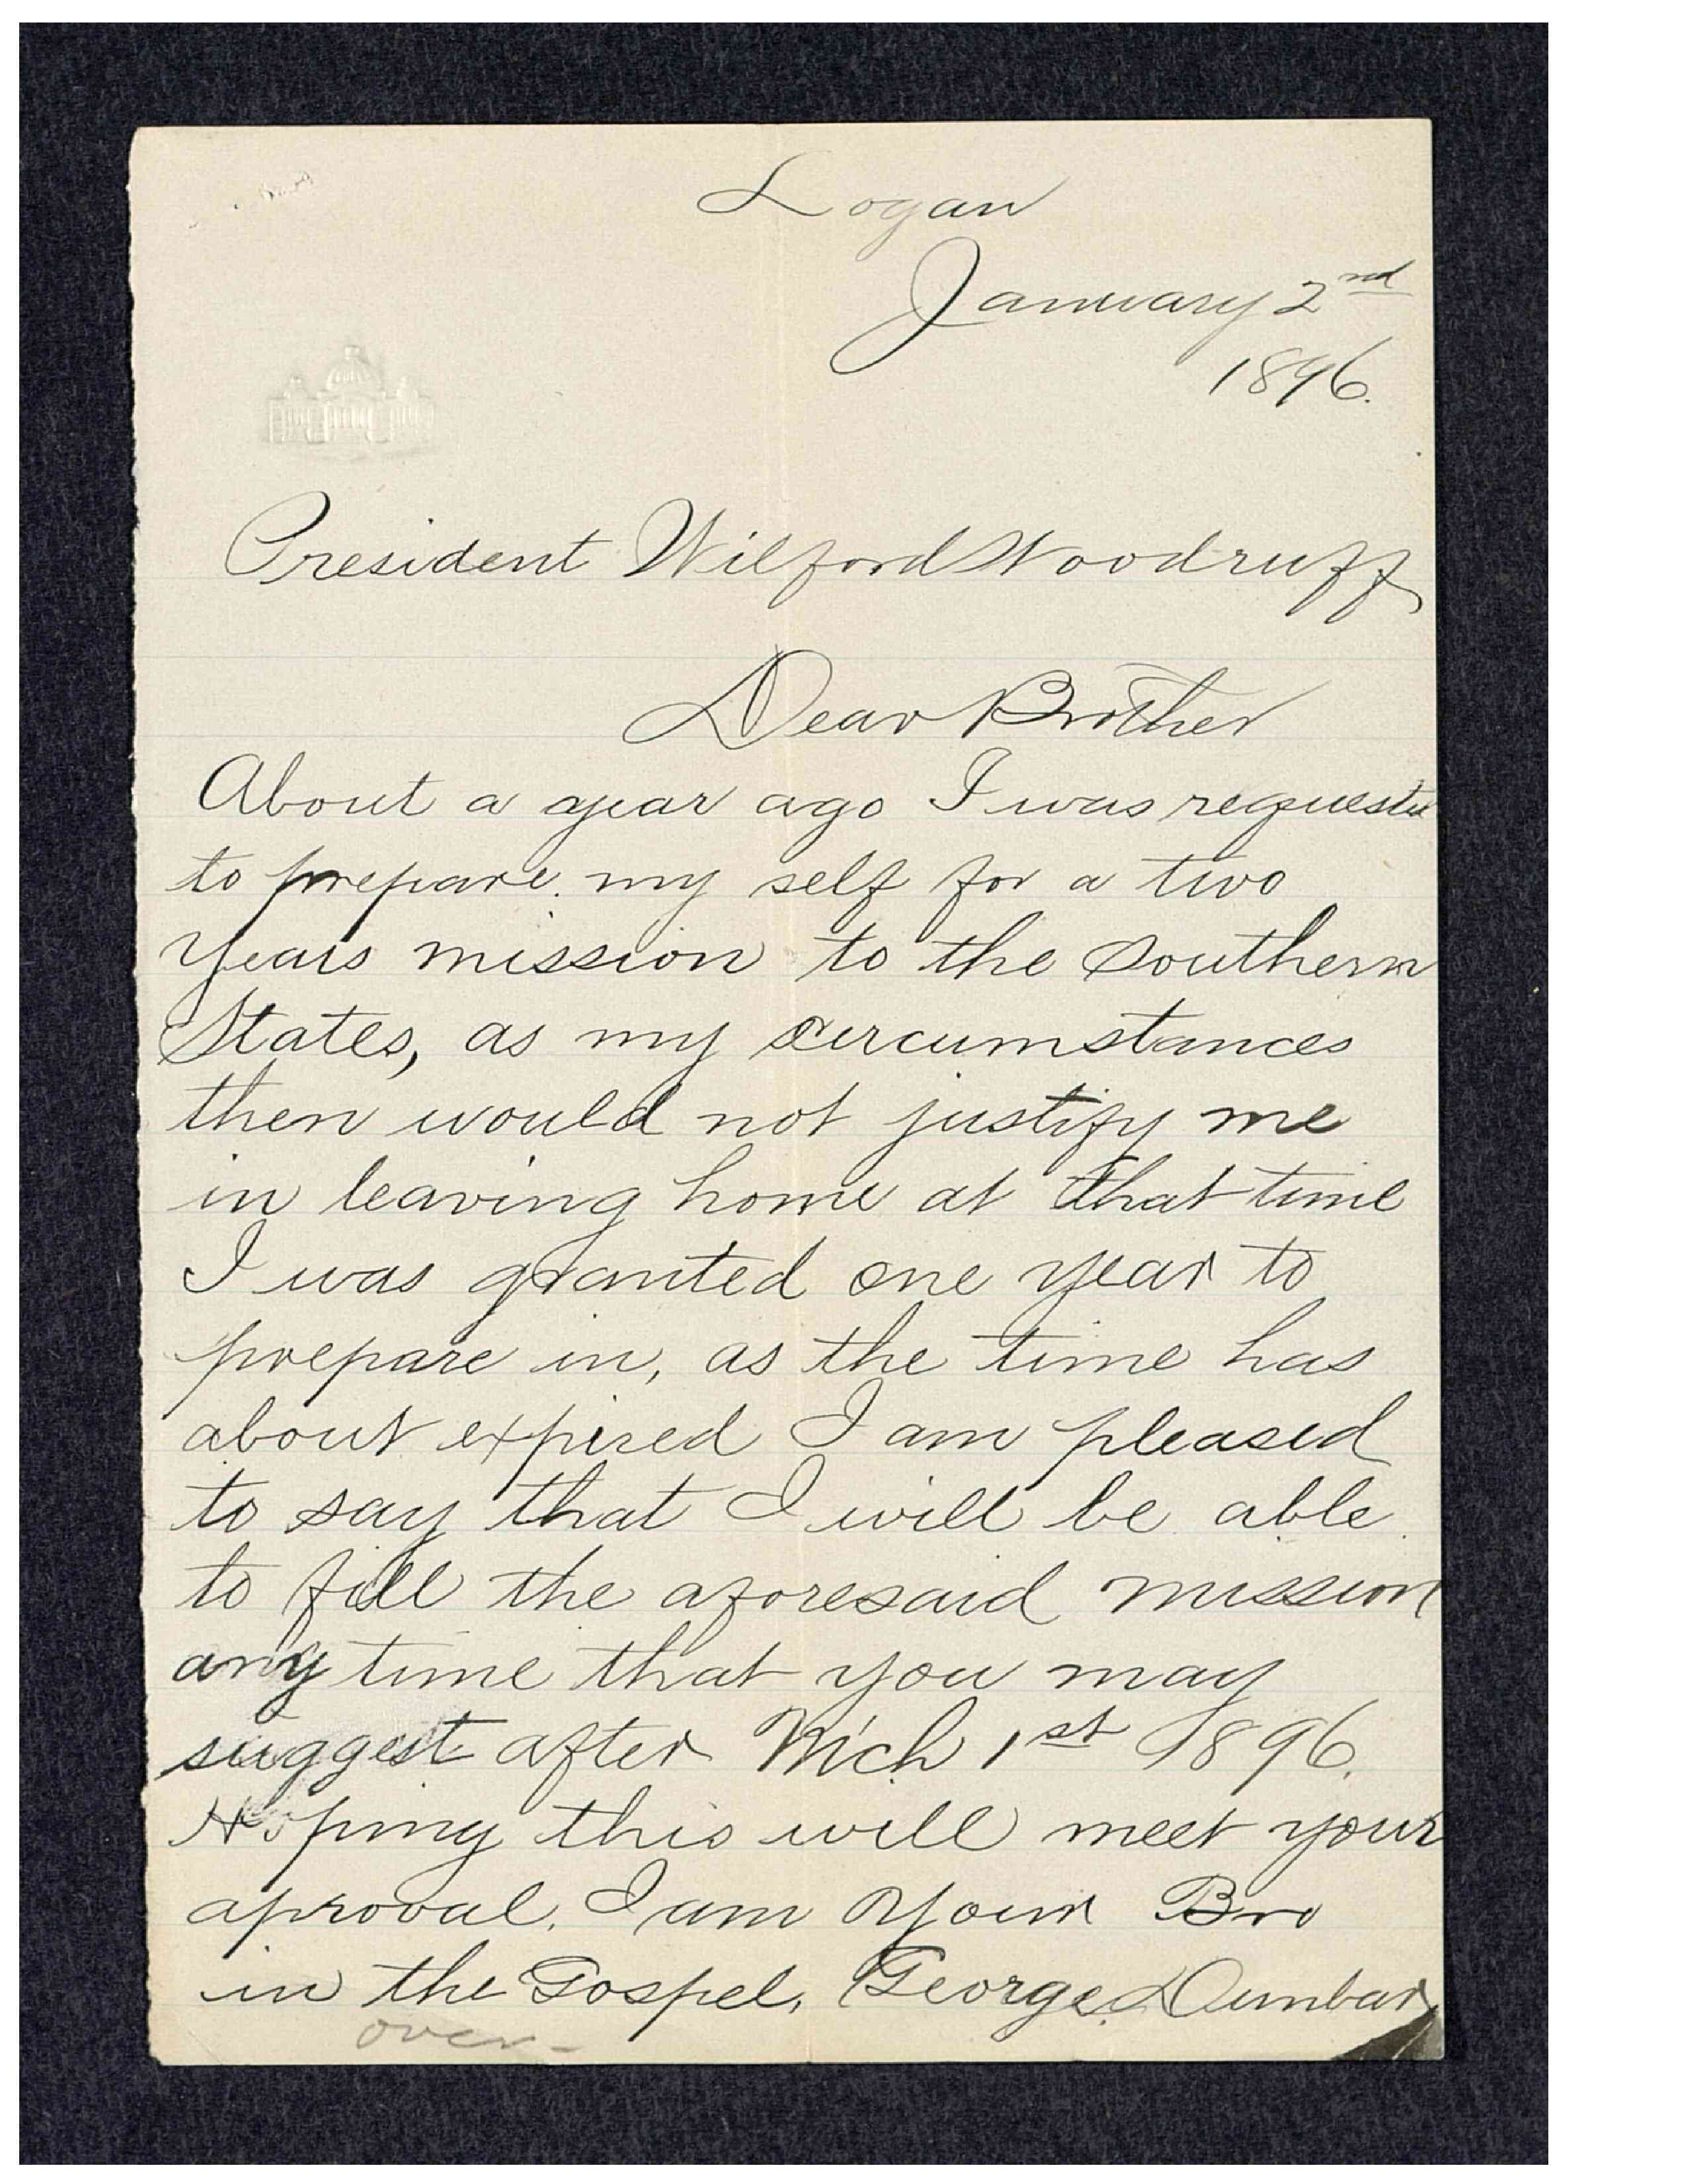 Logan
January 2nd
1896.
President Wilford Woodruff
Dear Brother
About a year ago I was requested
to prepare my self for a two
years mission to the Southern
States, as my circumstances
then would not justify me
in leaving home at that time
I was granted one year to
prepare in, as the time has
about expired I am pleased
to say that I will be able
to fill the aforesaid mission
any time that you may
suggest after Mch 1st 1896.
Hoping this will meet your
aproval. I am your Bro
in the Gospel. George Dunbar
over-